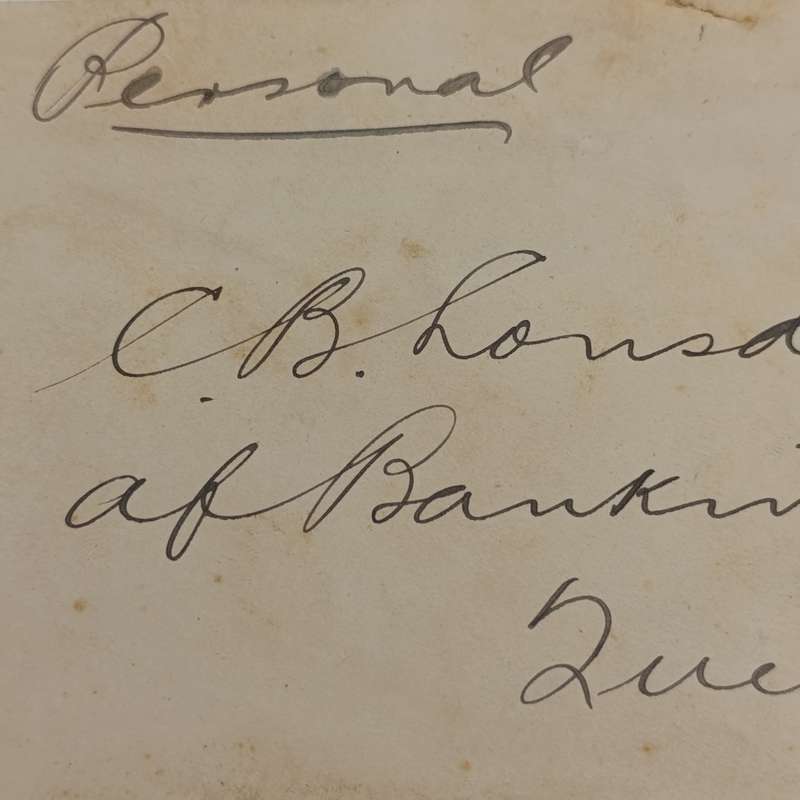 Personal
C. B. Lonsd
of Bankin
Que